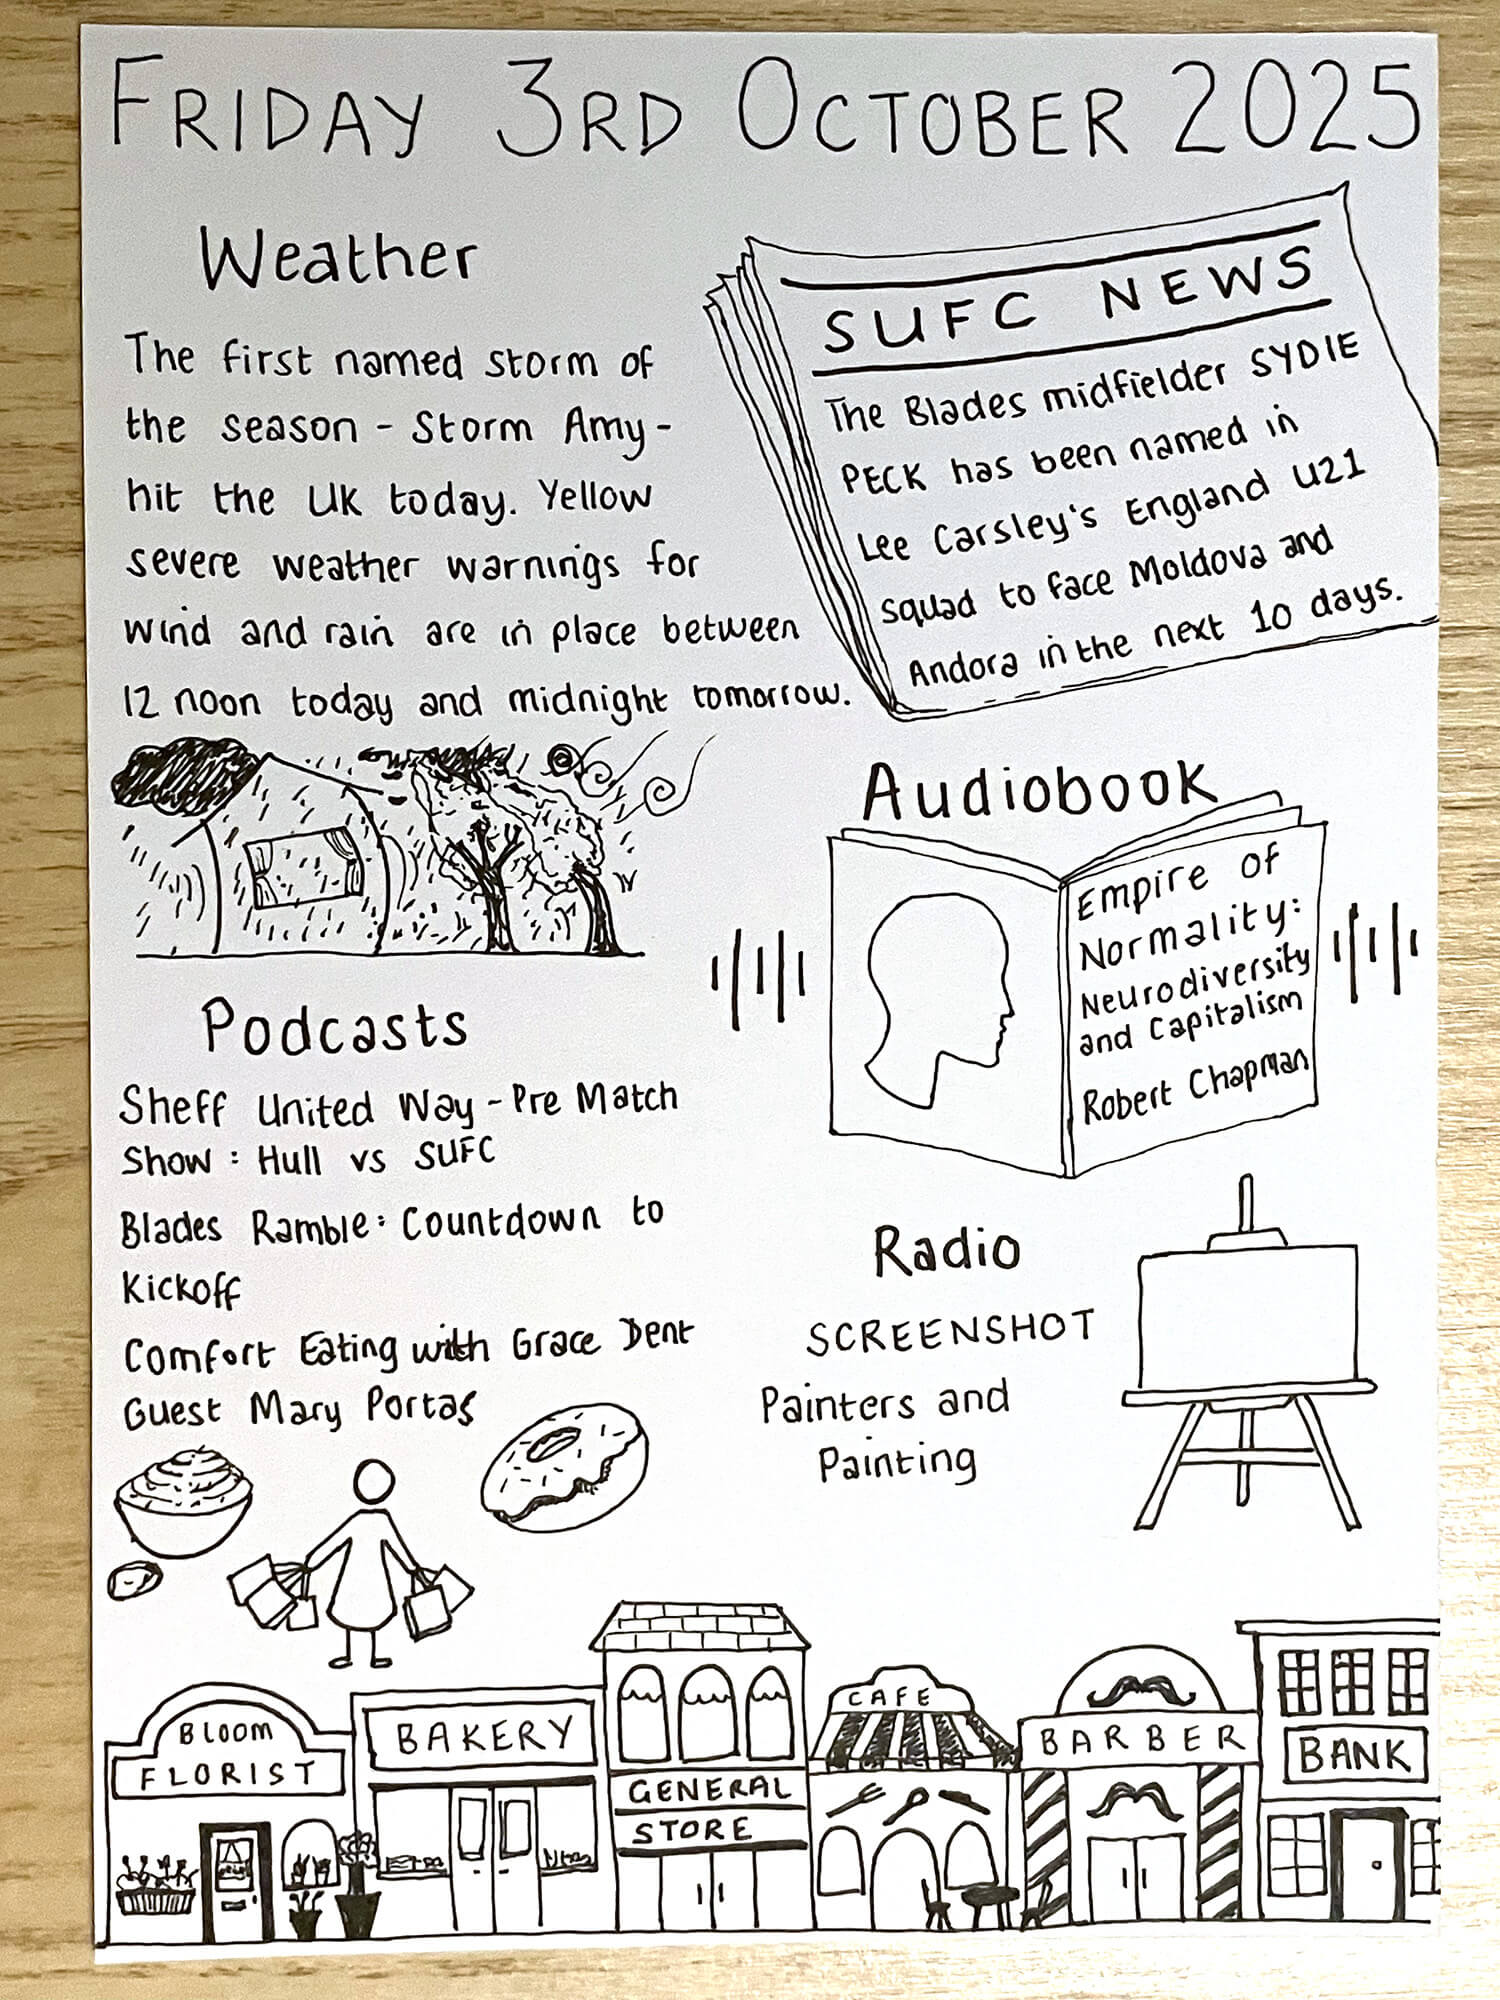 FRIDAY 3RD OCTOBER 2025
Weather
The first named storm of
the season - Storm Amy -
hit the UK today. Yellow
severe weather warnings for
wind and rain are in place between
12 noon today and midnight tomorrow.
SUFC NEWS
The Blades midfielder SYDIE
PECK has been named in
Lee Carsley's England U21
squad to face Moldova and
Andora in the next 10 days.
Audiobook
Empire of
Normality:
Neurodiversity
and Capitalism
Robert Chapman
Podcasts
Sheff United Way - Pre Match
Show: Hull vs SUFC
Blades Ramble: Countdown to
Kickoff
Comfort Eating with Grace Dent
Guest Mary Portas
Radio
SCREENSHOT
Painters and
Painting
BLOOM
FLORIST
BAKERY
GENERAL
STORE
CAFE
BARBER
BANK